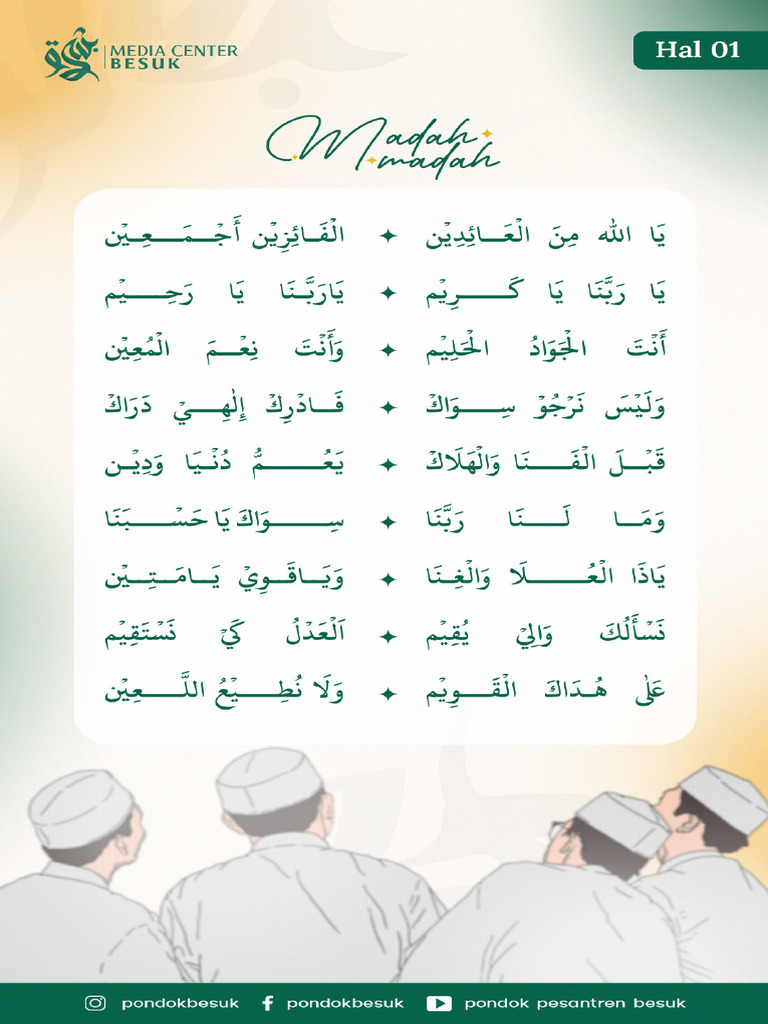 MEDIA CENTER
BESUK
Hal 01
Madah
madah
يَا الله مِنَ الْعَائِدِيْن ✦ الْفَائِزِيْن أَجْمَعِيْن
يَا رَبَّنَا يَا كَرِيْم ✦ يَارَبَّنَا يَا رَحِيْم
أَنْتَ الْجَوَادُ الْحَلِيْم ✦ وَأَنْتَ نِعْمَ الْمُعِيْن
وَلَيْسَ نَرْجُوْ سِوَاكْ ✦ فَادْرِكْ إِلٰهِيْ دَرَاكْ
قَبْلَ الْفَنَا وَالْهَلَاكْ ✦ يَعُمُّ دُنْيَا وَدِيْن
وَمَا لَنَا رَبَّنَا ✦ سِوَاكَ يَا حَسْبَنَا
يَاذَا الْعُلَا وَالْغِنَا ✦ وَيَاقَوِيْ يَامَتِيْن
نَسْأَلُكَ وَالِيْ يُقِيْم ✦ اَلْعَدْلُ كَيْ نَسْتَقِيْم
عَلٰى هُدَاكَ الْقَوِيْم ✦ وَلَا نُطِيْعُ اللَّعِيْن
pondokbesuk pondokbesuk pondok pesantren besuk